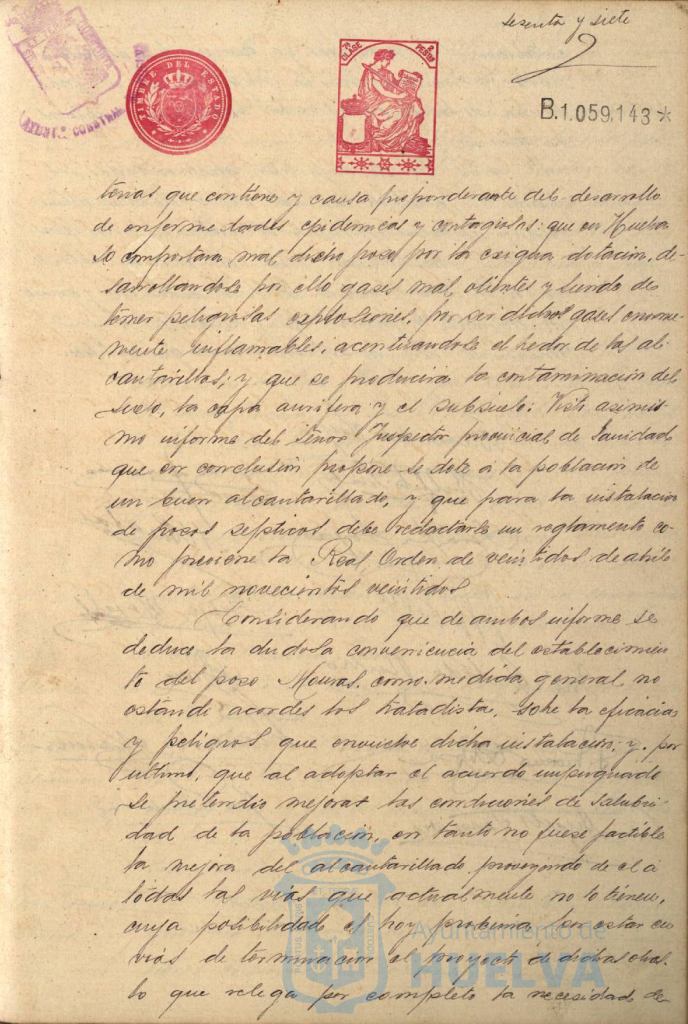 sesenta y siete
TIMBRE DEL ESTADO
7ª CLASE 2 PESETAS
B.1.059.143*
AYUNTº CONSTNAL
terias que contiene y causa preponderante del desarrollo
de enfermedades epidemicas y contagiosas: que en Huelva
se comportara mal dicho pozo por la exigua dotación, de-
sarrollandose por ello gases mal olientes y siendo de
temer peligrosas explosiones, por ser dichos gases enorme-
mente inflamables, acentuandose el hedor de las al-
cantarillas; y que se producira la contaminación del
suelo, la capa aurifera y el subsuelo: Visto asimis-
mo informe del Señor Inspector provincial de Sanidad
que en conclusión propone se dote á la población de
un buen alcantarillado, y que para la instalación
de pozos septicos debe redactarse un reglamento co-
mo previene la Real Orden de veintidos de abril
de mil novecientos veintidos
Considerando que de ambos informe se
deduce la dudosa conveniencia del establecimien
to del pozo Mouras como medida general, no
estando acordes los tratadista, sobre la eficacia
y peligros que envuelve dicha instalación; y por
ultimo, que al adoptar el acuerdo impugnado
se pretendio mejorar las condiciones de salubri-
dad de la población, en tanto no fuese factible
la mejora del alcantarillado proveyendo de el á
todas las vias que actualmente no lo tienen,
cuya posibilidad es hoy proxima, por estar en
vias de terminación el proyecto de dichas obras
lo que relega por completo la necesidad de
Ayuntamiento de
HUELVA